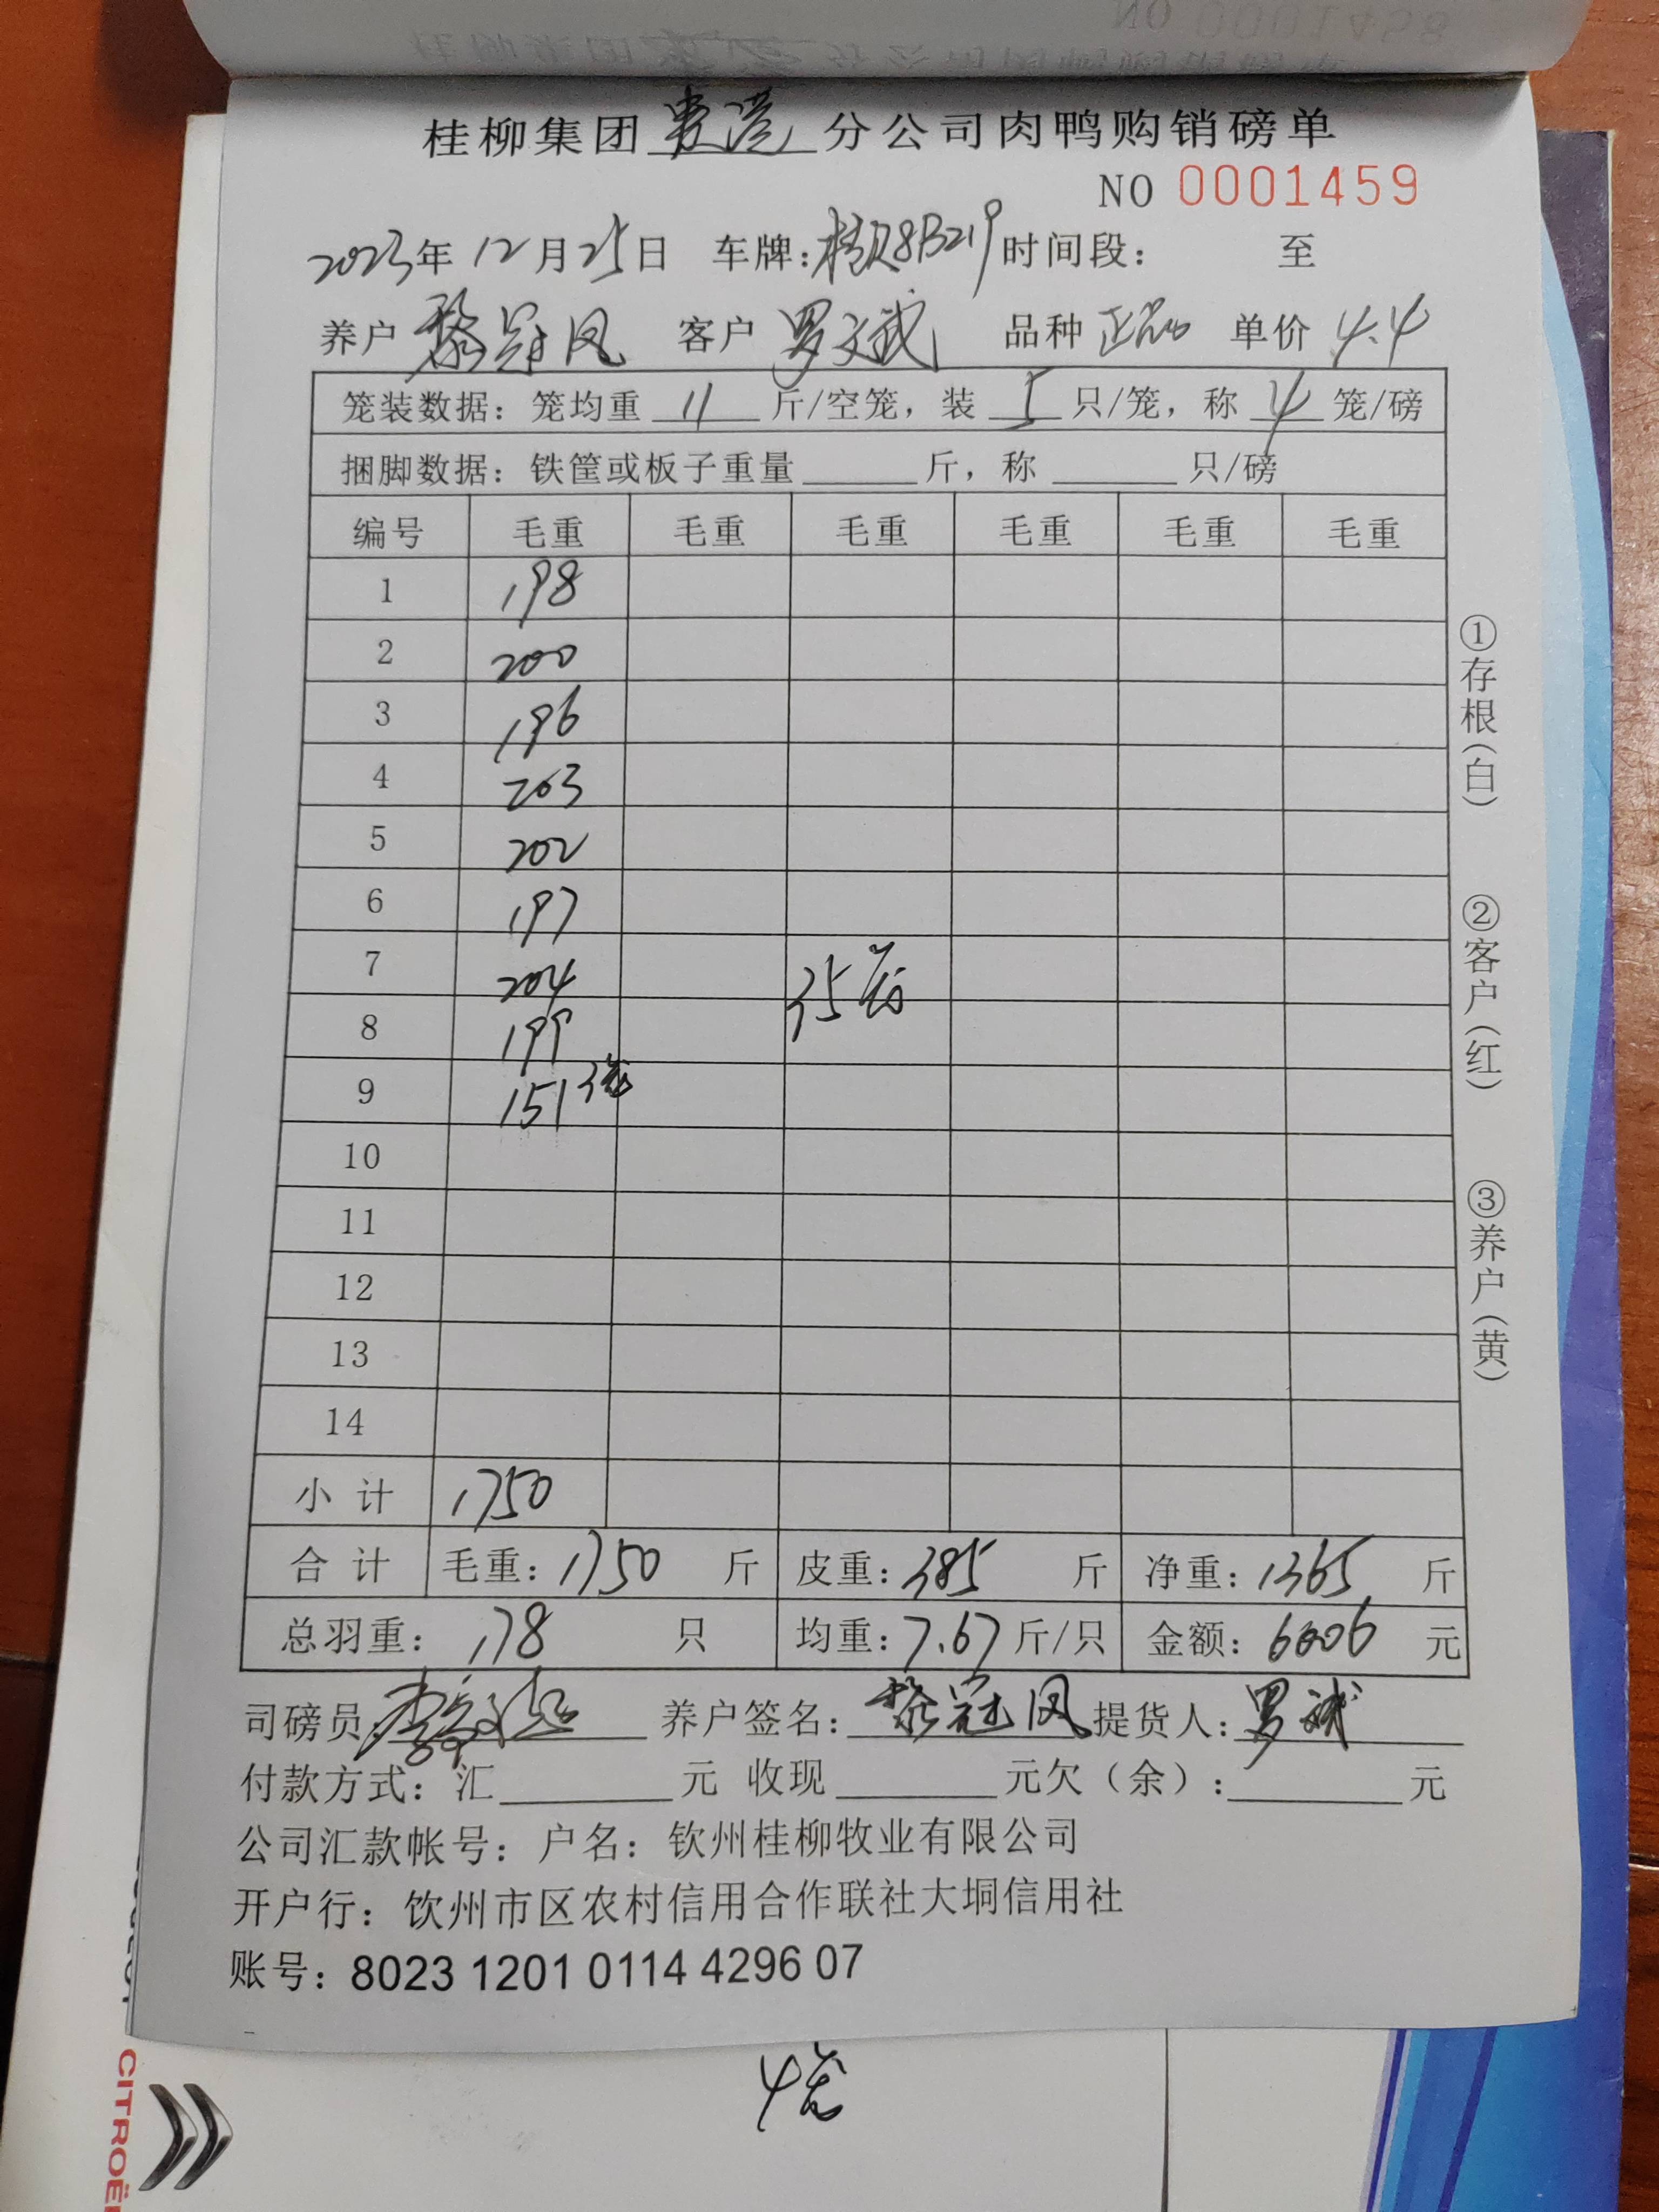 NO 0001458
桂柳集团贵港分公司肉鸭购销磅单
NO 0001459
2023年12月25日 车牌:桂R8B219 时间段: 至
养户 黎冠凤 客户 罗文斌 品种 正品 单价 4.4
笼装数据: 笼均重 11 斤/空笼, 装 5 只/笼, 称 4 笼/磅
捆脚数据: 铁筐或板子重量______斤, 称______只/磅
编号 毛重 毛重 毛重 毛重 毛重 毛重
1 198
2 200
3 196
4 203
5 202
6 197
7 204
35笼
8 199
9 151 3笼
10
11
12
13
14
小计 1750
合计 毛重: 1750 斤 皮重: 385 斤 净重: 1365 斤
总羽重: 178 只 均重: 7.67 斤/只 金额: 6006 元
司磅员: 养户签名: 黎冠凤 提货人: 罗斌
付款方式: 汇______元 收现______元欠(余):______元
公司汇款帐号: 户名: 钦州桂柳牧业有限公司
开户行: 钦州市区农村信用合作联社大垌信用社
账号: 8023 1201 0114 4296 07
①存根(白)
②客户(红)
③养户(黄)
4笼
CITROË